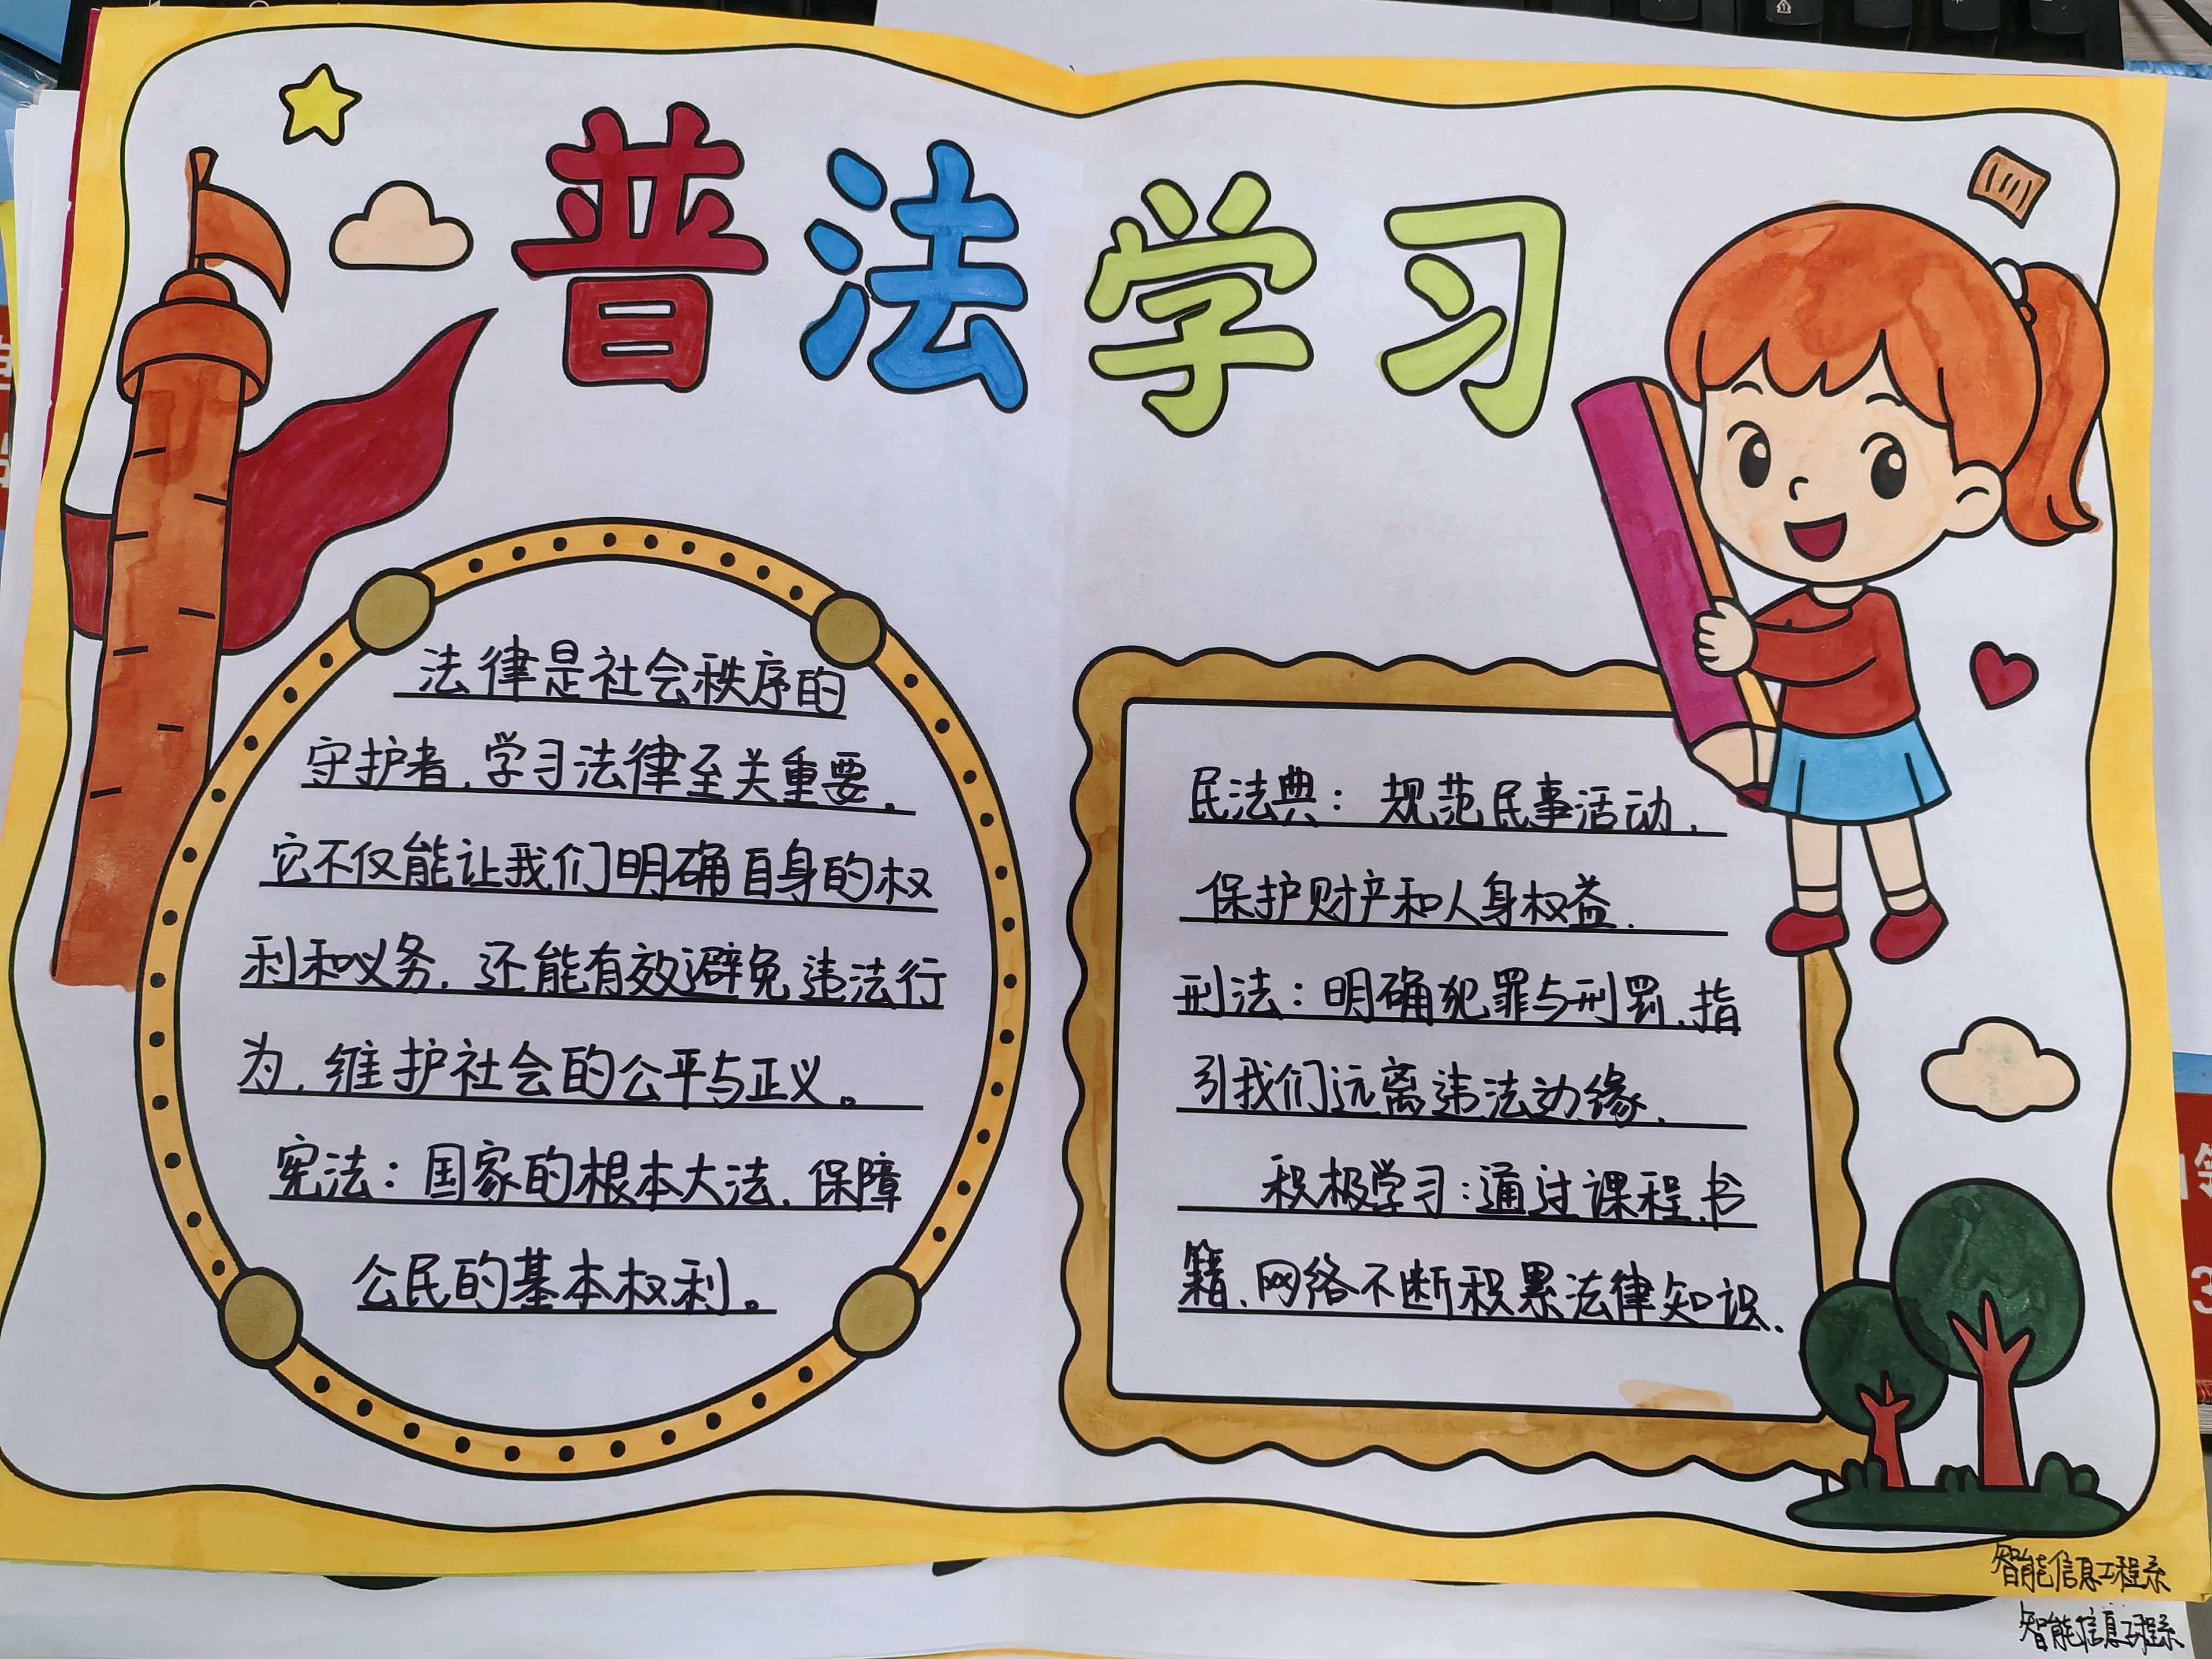 普法学习
法律是社会秩序的
守护者,学习法律至关重要。
它不仅能让我们明确自身的权
利和义务,还能有效避免违法行
为,维护社会的公平与正义。
宪法:国家的根本大法,保障
公民的基本权利。
民法典:规范民事活动,
保护财产和人身权益.
刑法:明确犯罪与刑罚,指
引我们远离违法边缘.
积极学习:通过课程、书
籍、网络不断积累法律知识.
智能信息工程系
智能信息工程系